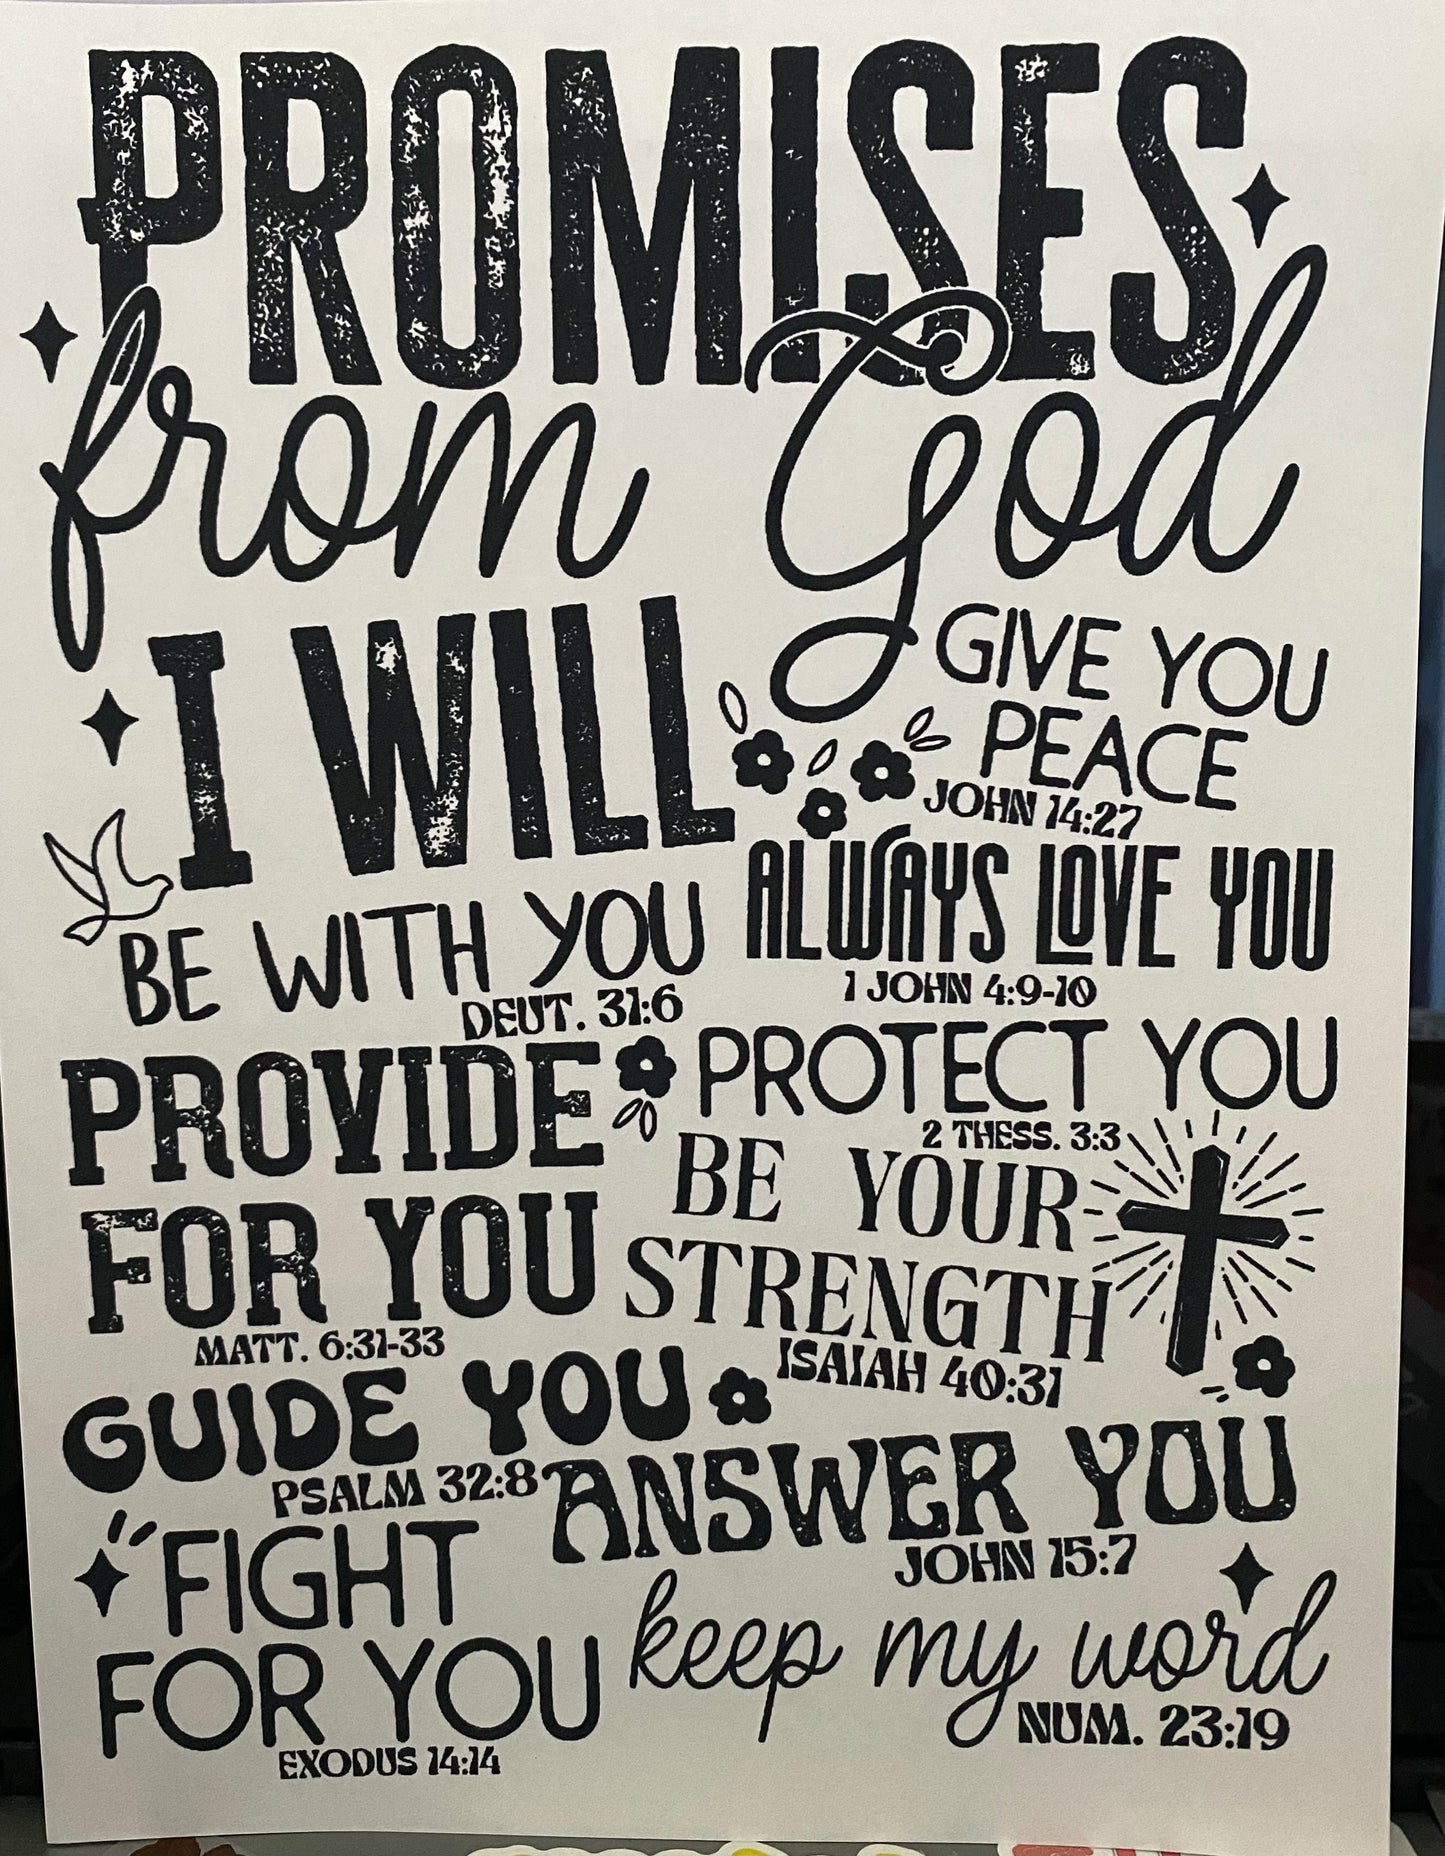 PROMISES
from God
I WILL
GIVE YOU
PEACE
JOHN 14:27
BE WITH YOU
DEUT. 31:6
ALWAYS LOVE YOU
1 JOHN 4:9-10
PROVIDE
FOR YOU
MATT. 6:31-33
PROTECT YOU
2 THESS. 3:3
BE YOUR
STRENGTH
ISAIAH 40:31
GUIDE YOU
PSALM 32:8
ANSWER YOU
JOHN 15:7
FIGHT
FOR YOU
EXODUS 14:14
keep my word
NUM. 23:19